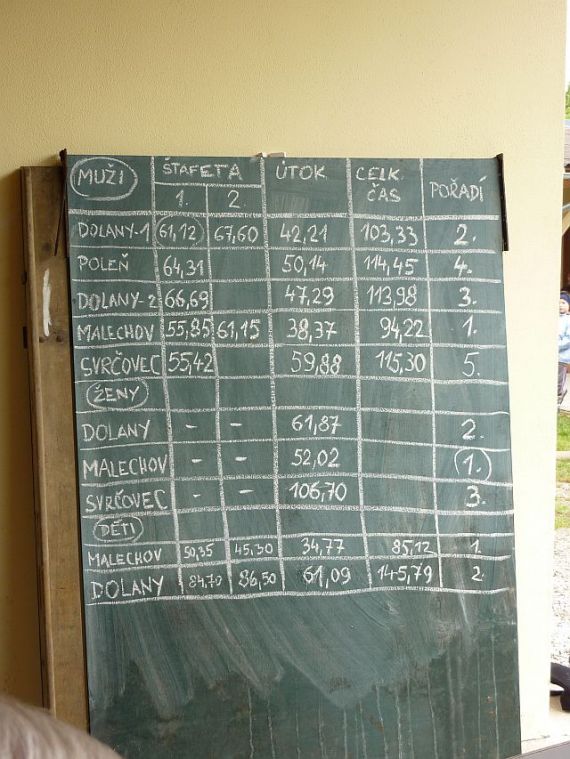 MUŽI ŠTAFETA ÚTOK CELK. ČAS POŘADÍ
1. 2.
DOLANY-1 61,12 67,60 42,21 103,33 2.
POLEŇ 64,31 50,14 114,45 4.
DOLANY-2 66,69 47,29 113,98 3.
MALECHOV 55,85 61,15 38,37 94,22 1.
SVRČOVEC 55,42 59,88 115,30 5.
ŽENY
DOLANY - - 61,87 2.
MALECHOV - - 52,02 1.
SVRČOVEC - - 106,70 3.
DĚTI
MALECHOV 50,35 45,30 34,77 85,12 1.
DOLANY 84,70 86,50 61,09 145,79 2.